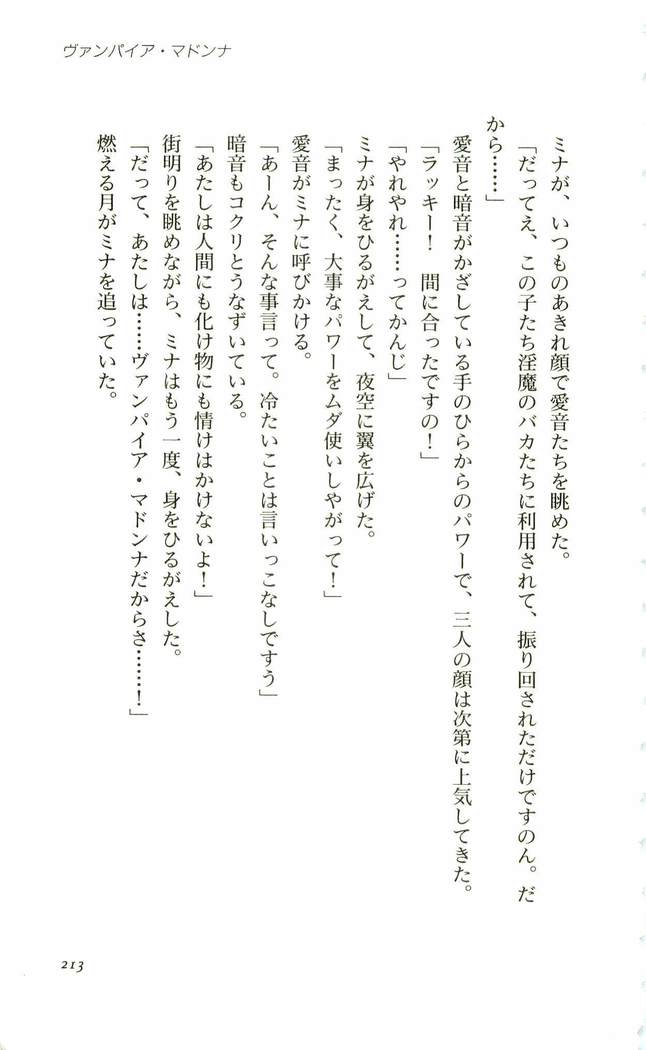 ヴァンパイア・マドンナ
ミナが、いつものあきれ顔で愛音たちを眺めた。
「だってえ、この子たち淫魔のバカたちに利用されて、振り回されただけですのん。だ
から……」
愛音と暗音がかざしている手のひらからのパワーで、三人の顔は次第に上気してきた。
「ラッキー！　間に合ったですの！」
「やれやれ……ってかんじ」
ミナが身をひるがえして、夜空に翼を広げた。
「まったく、大事なパワーをムダ使いしやがって！」
愛音がミナに呼びかける。
「あーん、そんな事言って。冷たいことは言いっこなしですう」
暗音もコクリとうなずいている。
「あたしは人間にも化け物にも情けはかけないよ！」
街明りを眺めながら、ミナはもう一度、身をひるがえした。
「だって、あたしは……ヴァンパイア・マドンナだからさ……！」
燃える月がミナを追っていた。
213